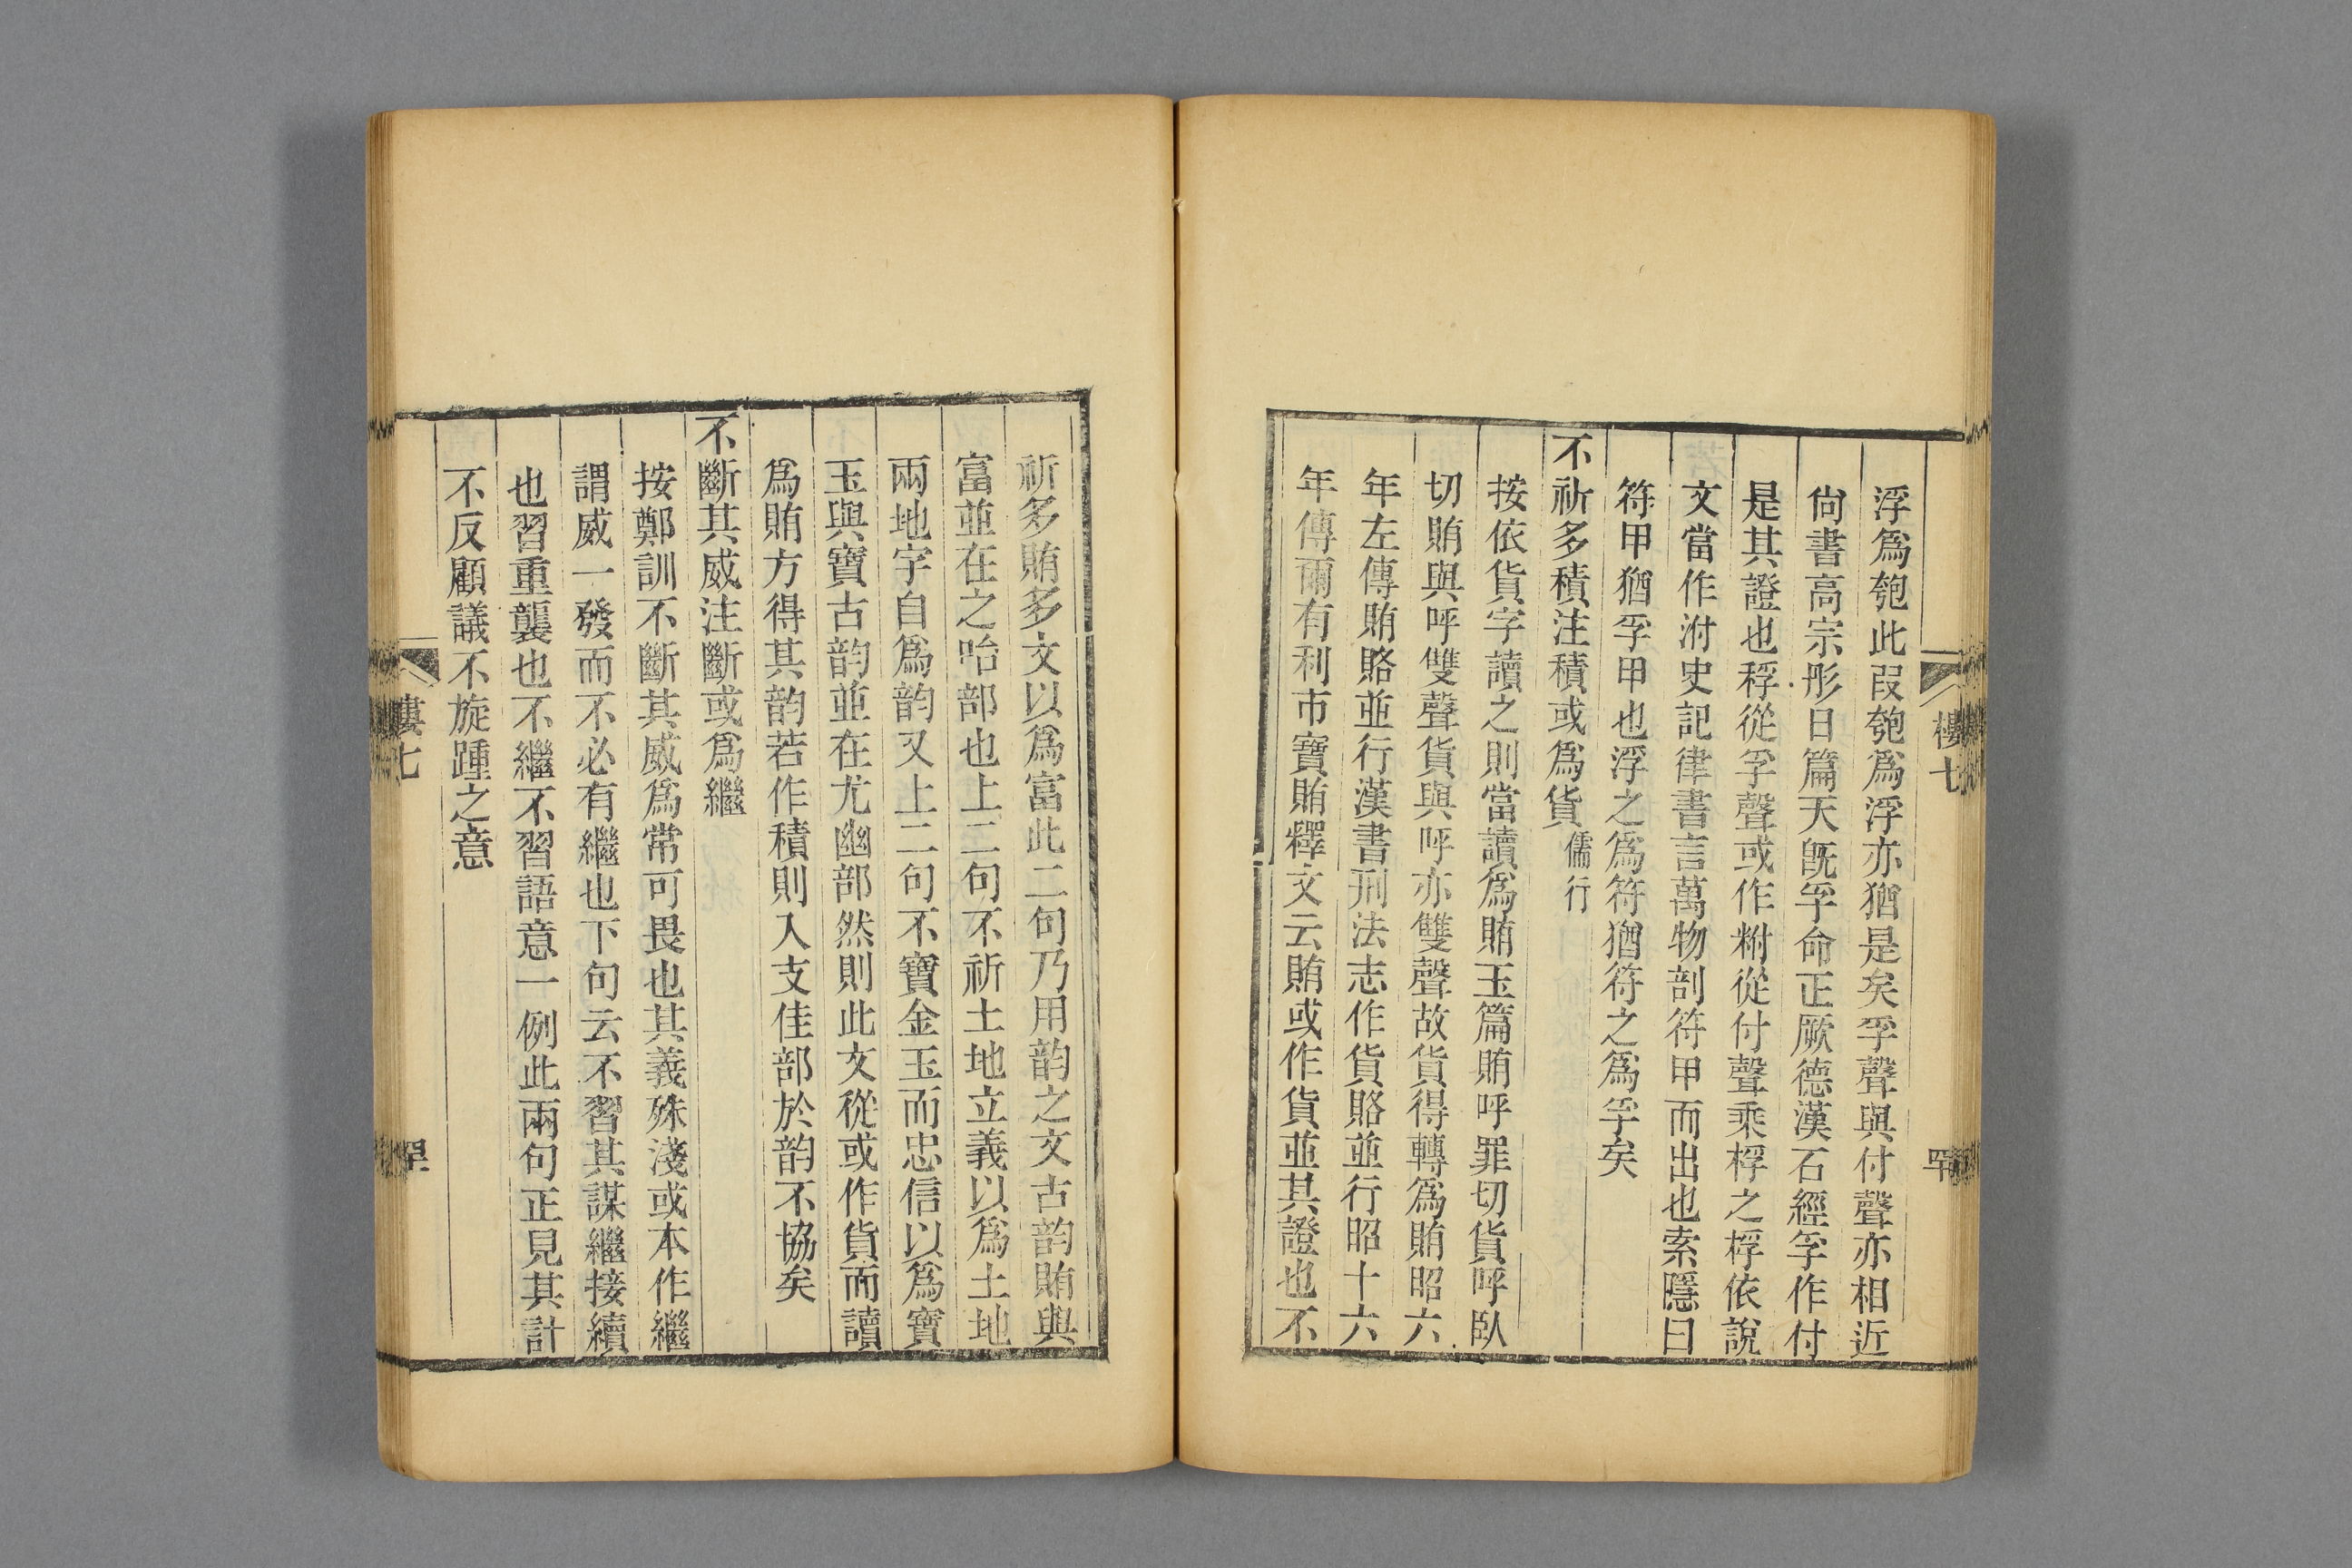 浮爲匏此叚匏爲浮亦猶是矣孚聲與付聲亦相近
尙書高宗肜日篇天旣孚命正厥德漢石經孚作付
是其證也稃從孚聲或作粰從付聲乘桴之桴依說
文當作泭史記律書言萬物剖符甲而出也索隱曰
符甲猶孚甲也浮之爲符猶符之爲孚矣
不祈多積注積或爲貨儒行
按依貨字讀之則當讀爲賄玉篇賄呼罪切貨呼臥
切賄與呼雙聲貨與呼亦雙聲故貨得轉爲賄昭六
年左傳賄賂並行漢書刑法志作貨賂並行昭十六
年傳爾有利市寶賄釋文云賄或作貨並其證也不
樓七
祈多賄多文以爲富此二句乃用韵之文古韵賄與
富並在之咍部也上二句不祈土地立義以爲土地
兩地字自爲韵又上二句不寶金玉而忠信以爲寶
玉與寶古韵並在尤幽部然則此文從或作貨而讀
爲賄方得其韵若作積則入支佳部於韵不協矣
不斷其威注斷或爲繼
按鄭訓不斷其威爲常可畏也其義殊淺或本作繼
謂威一發而不必有繼也下句云不習其謀繼接續
也習重襲也不繼不習語意一例此兩句正見其計
不反顧議不旋踵之意
樓七